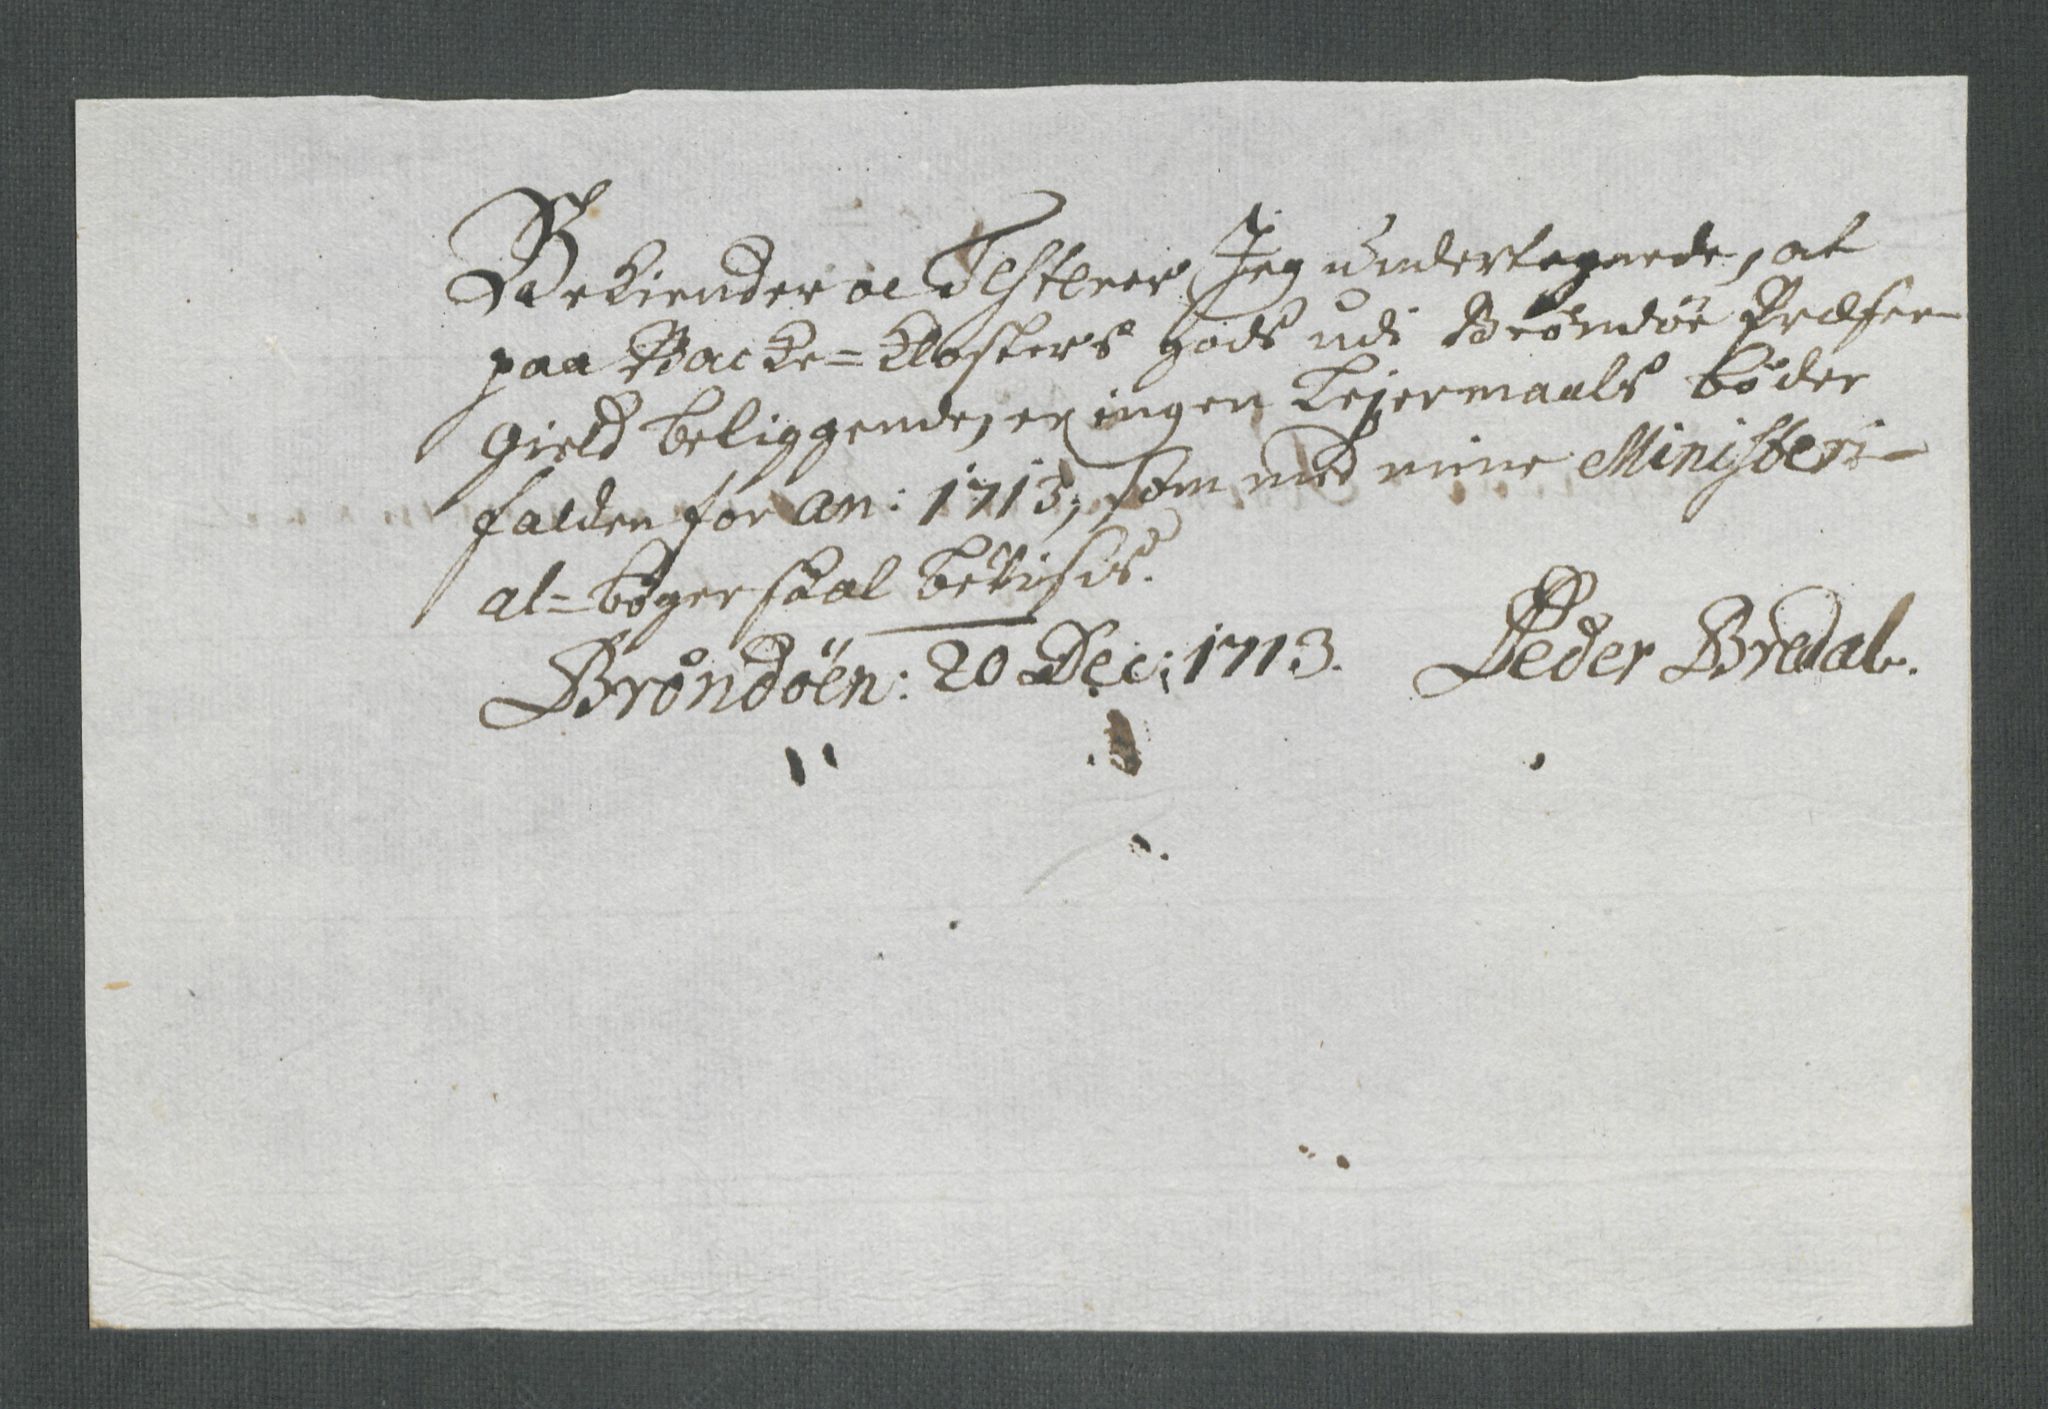 Bekiender oc Testerer Jeg undertegnede, at
paa Backe=Klosters gods udi Brøndøe Præste-
gield beliggende, er ingen Lejermaals bøder
falden for an: 1713, som med mine Ministeri-
al=bøger skal bevises.
Brøndøen: 20 Dec: 1713. Peder Bredal.